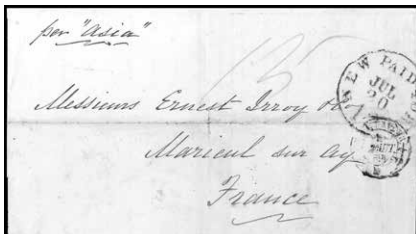 per "Asia"
15
NEW PAID
JUL
20
Messieurs Ernest Irroy
Mareuil sur Ay
France